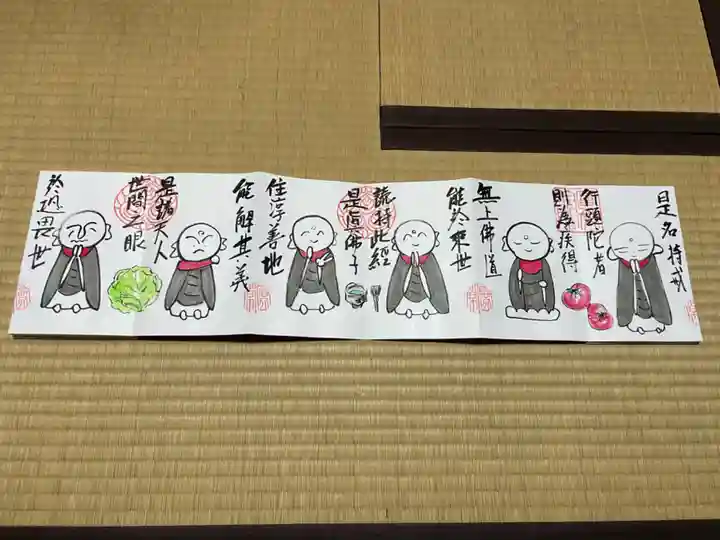 是名持戒
行頭陀者
則為疾得
無上佛道
能於来世
讀持此經
是真佛子
住淳善地
能解其義
是諸天人
世間之眼
於恐畏世